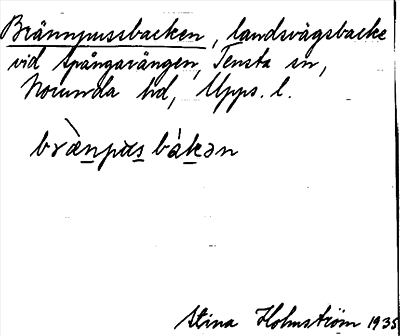 Brännpussbacken, landsvägsbacke
vid Spångavängen, Tensta sn,
Norunda hd, Upps. l.
bræ̀npus bákən
Stina Holmström 1935